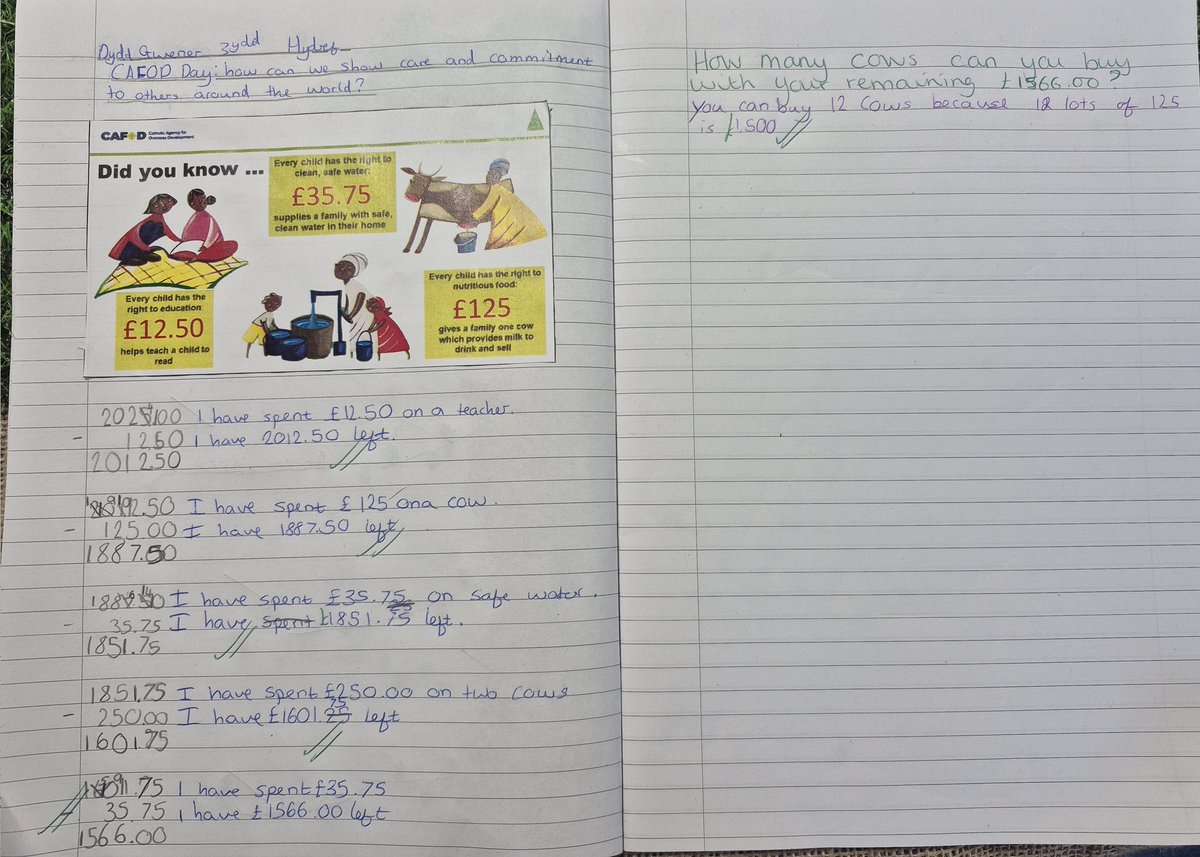 Dydd Gwener 3ydd Hydref
CAFOD Day: how can we show care and commitment
to others around the world?
CAFOD Catholic Agency for
Overseas Development
Did you know ...
Every child has the right to
clean, safe water:
£35.75
supplies a family with safe,
clean water in their home
Every child has the
right to education:
£12.50
helps teach a child to
read
Every child has the right to
nutritious food:
£125
gives a family one cow
which provides milk to
drink and sell
I have spent £12.50 on a teacher.
- 12.50 I have 2012.50 left.
2012.50
I have spent £125 on a cow.
- 125.00 I have 1887.50 left
1887.50
I have spent £35.75 on safe water.
- 35.75 I have spent £1851.75 left.
1851.75
1851.75 I have spent £250.00 on two cows
- 250.00 I have £1601.75 left
1601.75
I have spent £35.75
35.75 I have £1566.00 left
1566.00
How many cows can you buy
with your remaining £1566.00?
You can buy 12 cows because 12 lots of 125
is £1500